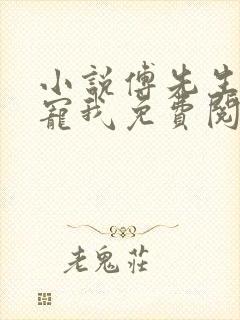 小說傅先生
寵我免費閱
老鬼莊